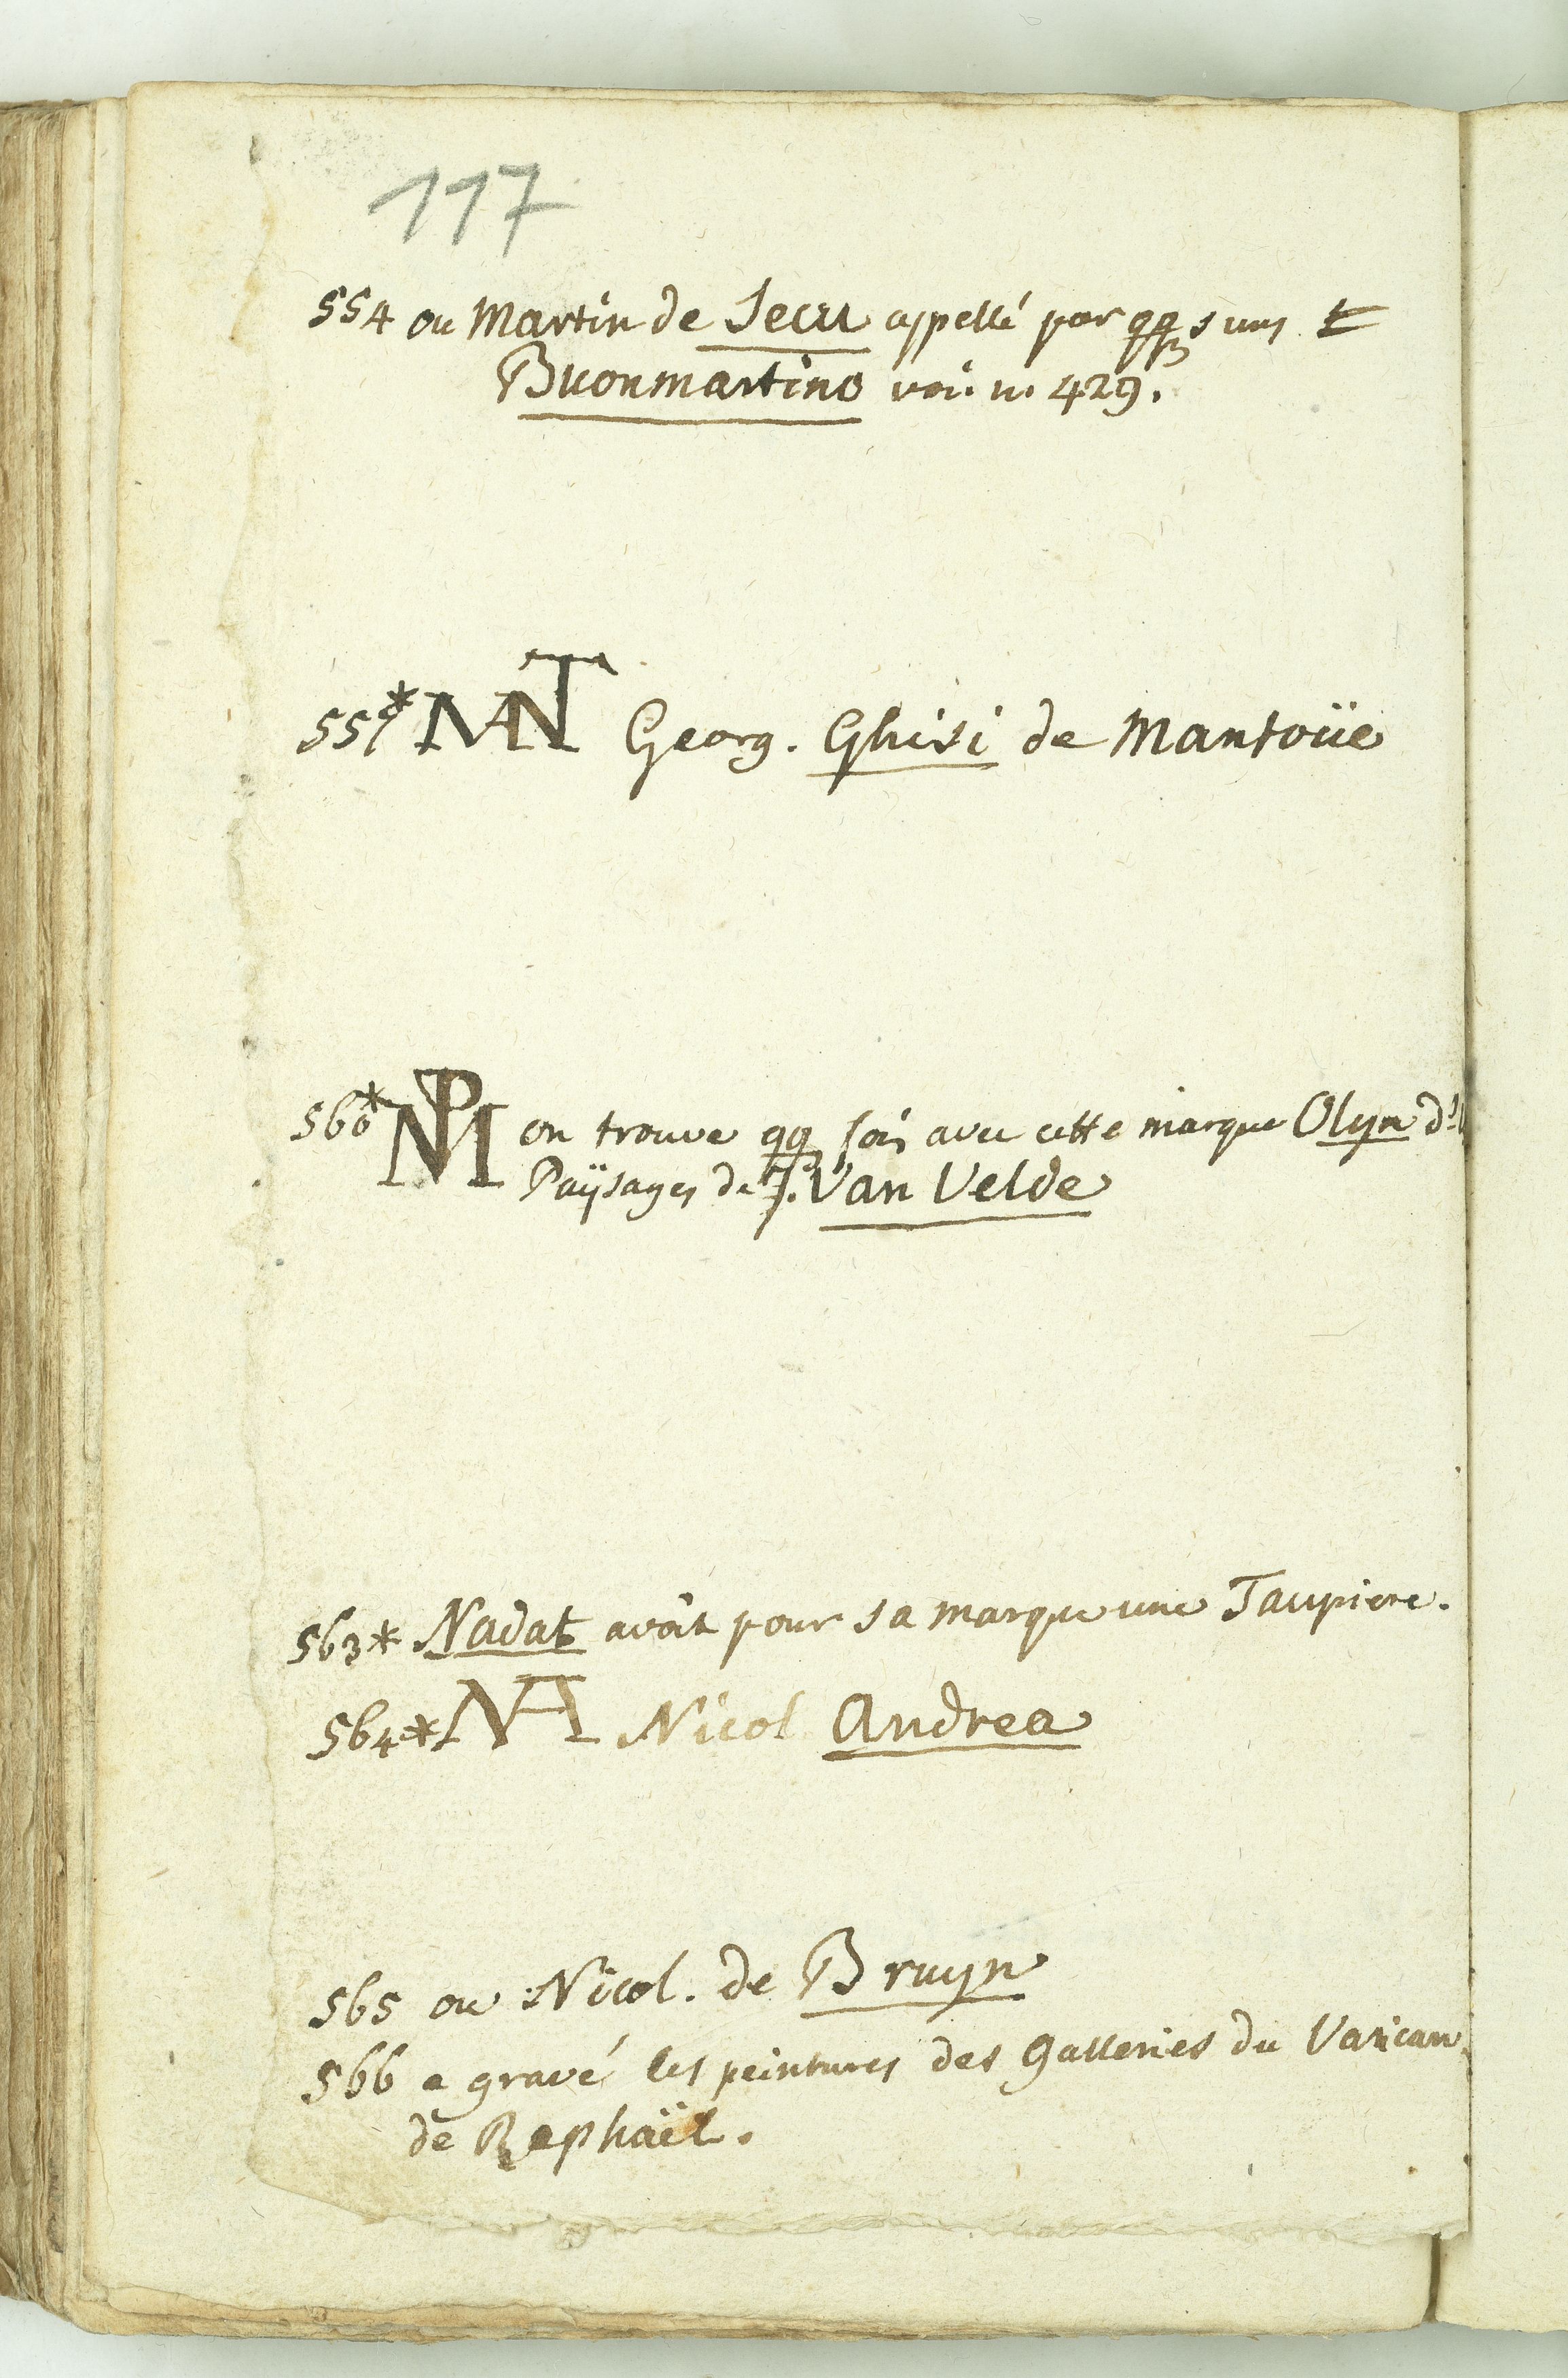 117
554 ou Martin de Secu appellé par qq s uns
Buonmartino voi. n. 429.
557* MANT Georg. Ghisi de Mantoüe
560* MP on trouve qq fois avec cette marque Olyn
Païsages de J. Van Velde
563* Nadat avoit pour sa marque une Taupiere.
564* NA Nicol Andrea
565 ou Nicol. de Bruyn
566 a gravé les peintures des Galleries du Vatican
de Raphaël.